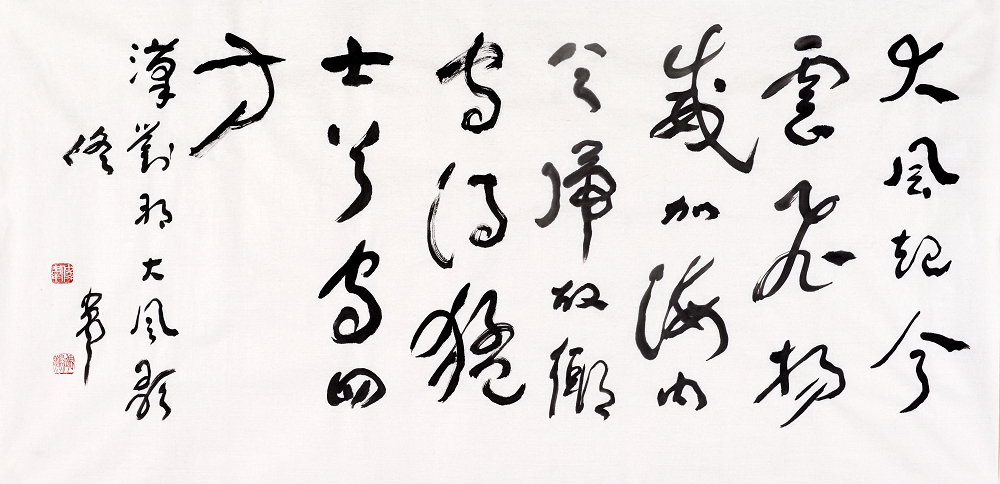 大風起兮
雲飛揚
威加海内
兮歸故鄉
安得猛
士兮守四
方
漢劉邦大風歌
佟